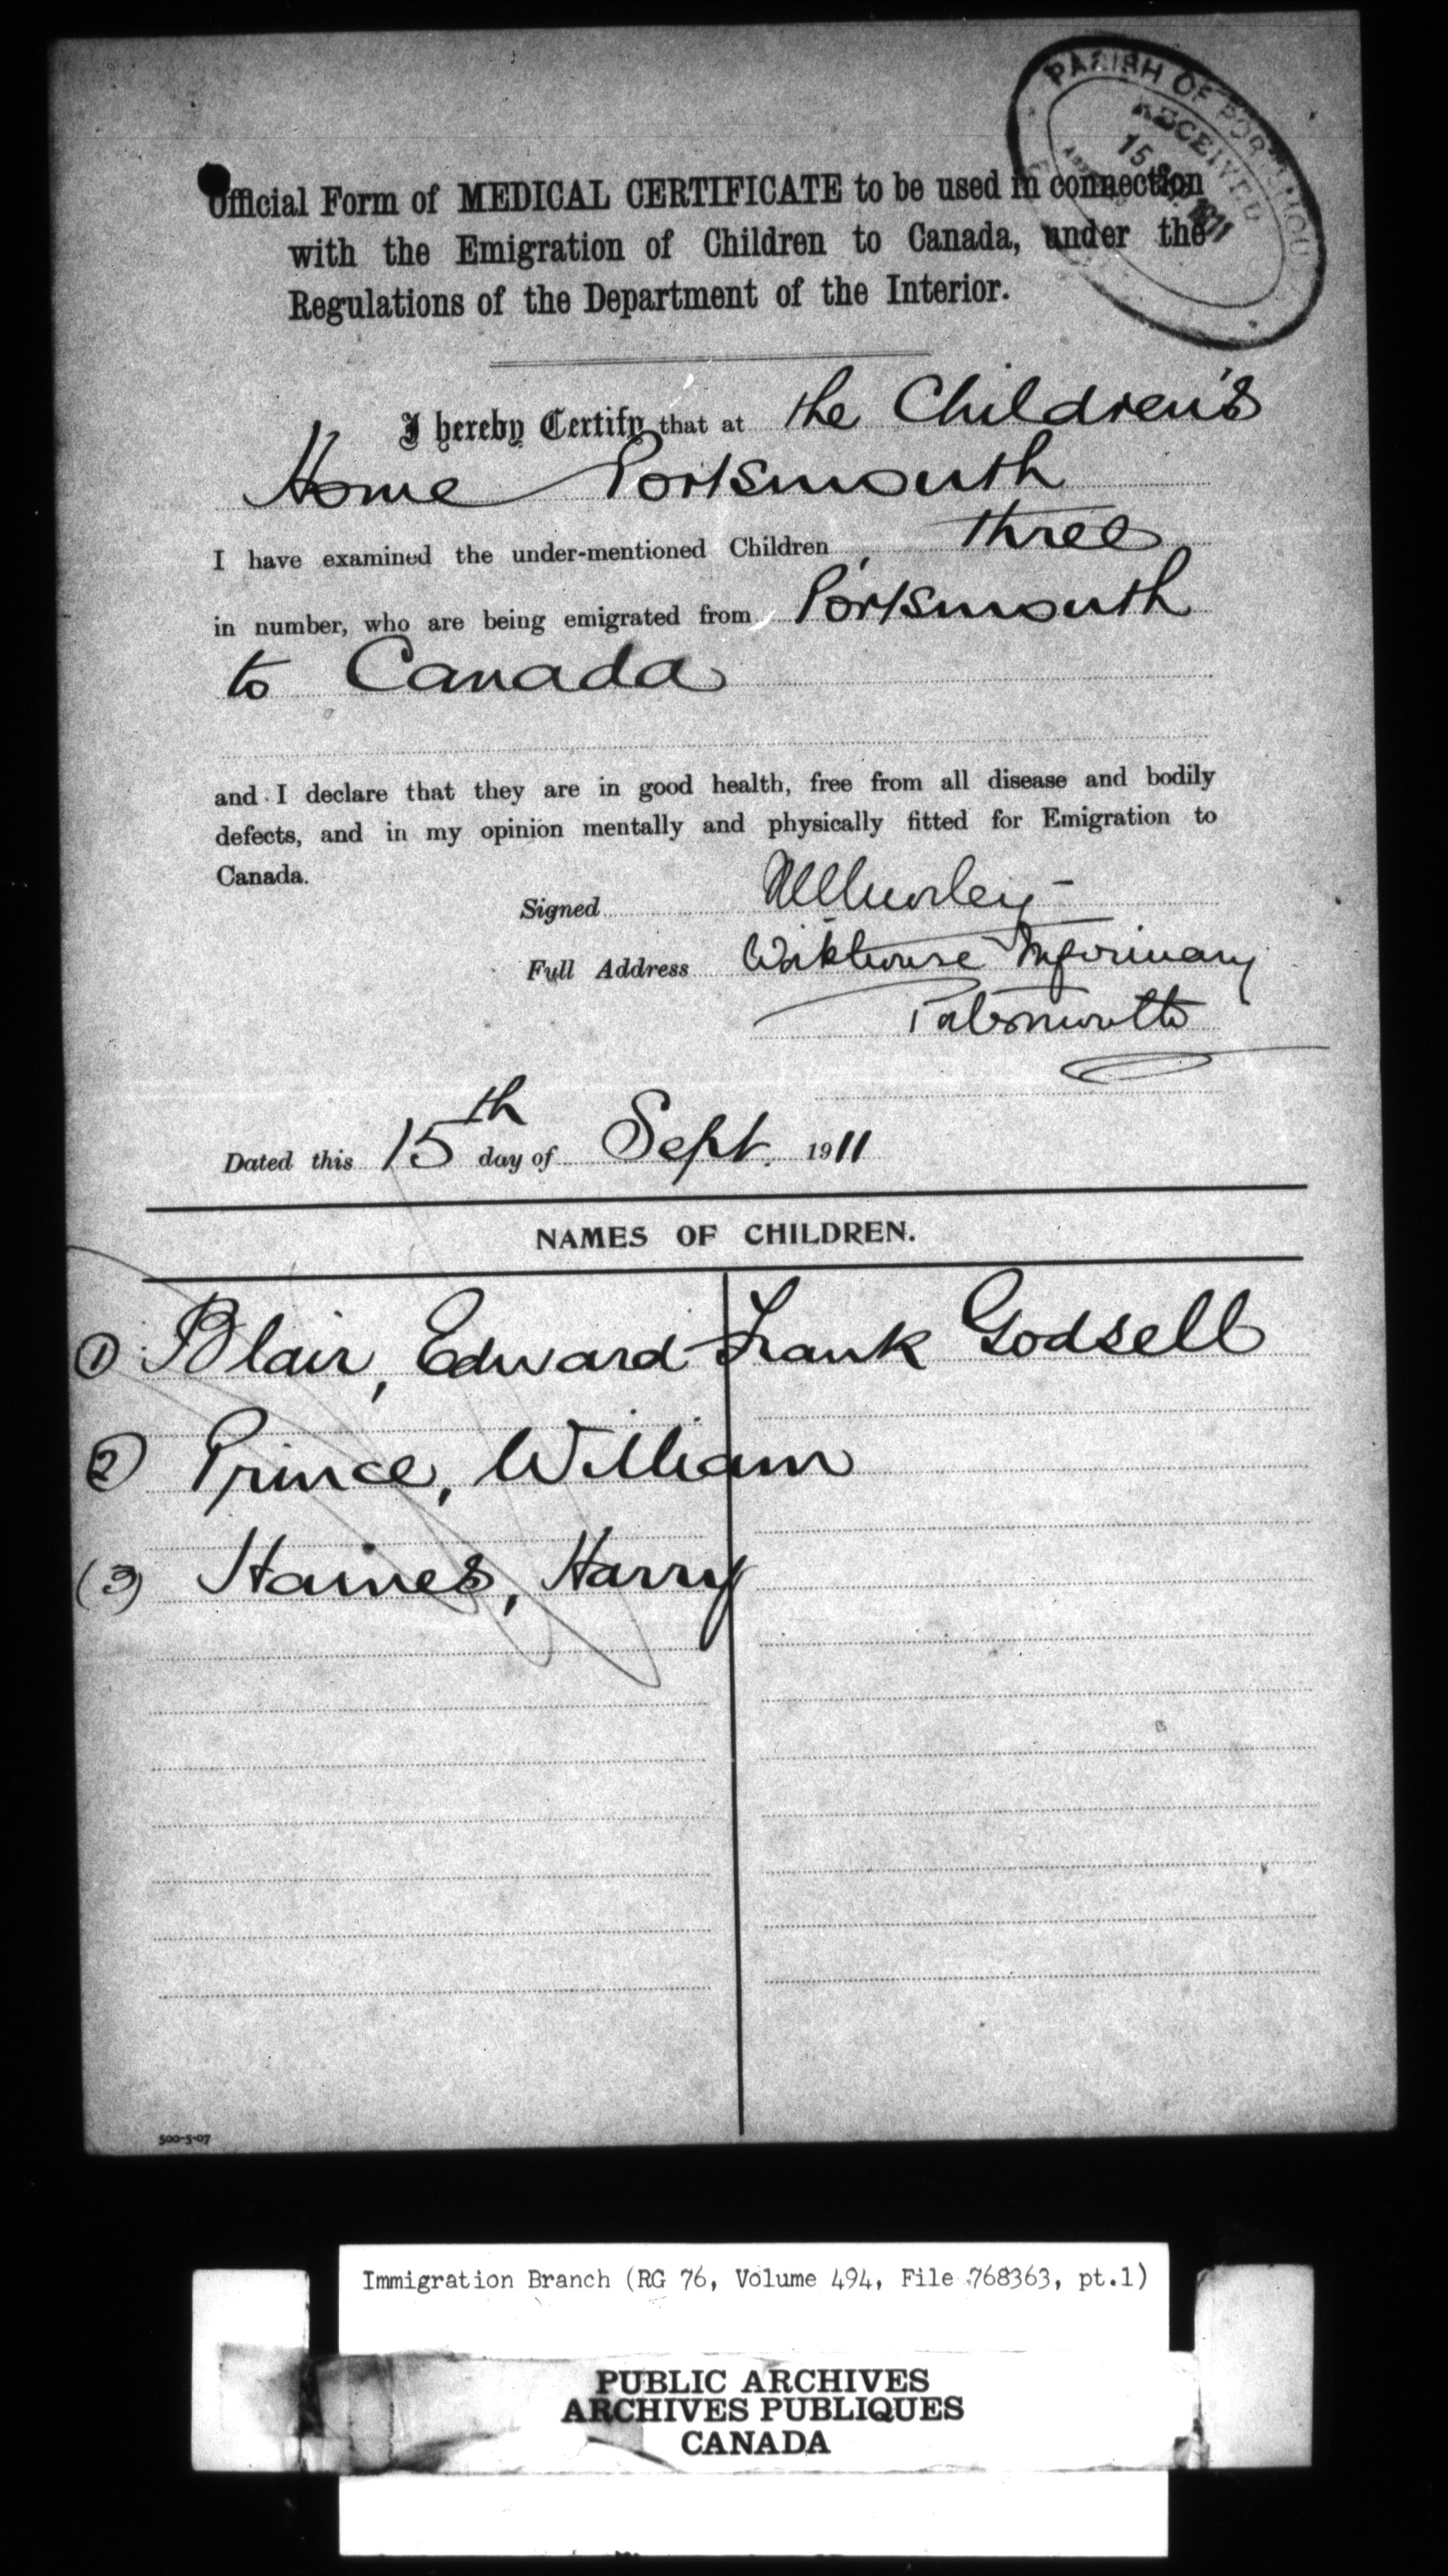 PARISH OF PORTSMOU
RECEIVED
15 1911
Official Form of MEDICAL CERTIFICATE to be used in connection
with the Emigration of Children to Canada, under the
Regulations of the Department of the Interior.
I hereby Certify that at the Children's
Home Portsmouth
I have examined the under-mentioned Children three
in number, who are being emigrated from Portsmouth
to Canada
and I declare that they are in good health, free from all disease and bodily
defects, and in my opinion mentally and physically fitted for Emigration to
Canada.
Signed
Full Address Workhouse Infirmary
Portsmouth
Dated this 15th day of Sept. 1911
NAMES OF CHILDREN.
(1) Blair, Edward Frank Godsell
(2) Prince, William
(3) Haines, Harry
500-5-07
Immigration Branch (RG 76, Volume 494, File 768363, pt.1)
PUBLIC ARCHIVES
ARCHIVES PUBLIQUES
CANADA